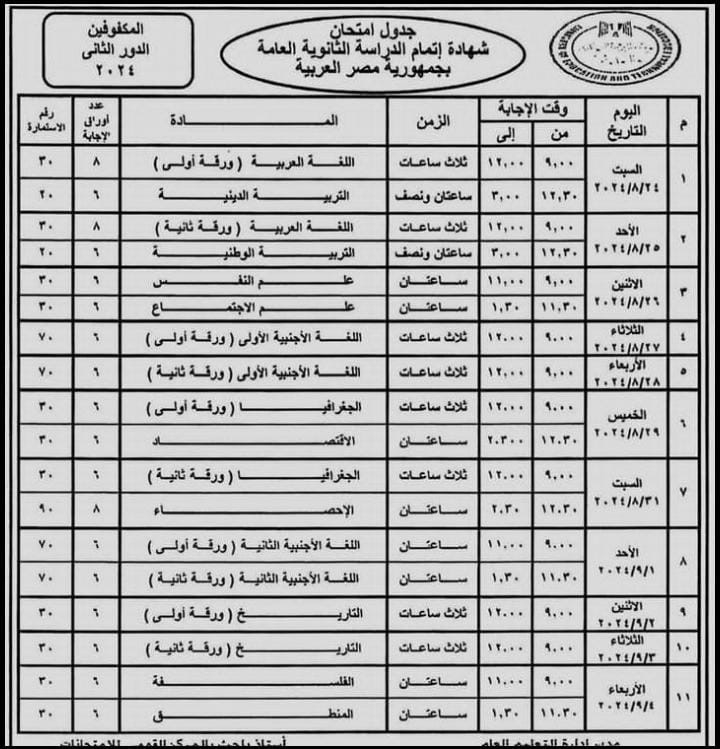 المكفوفين
الدور الثانى
٢٠٢٤
جدول امتحان
شهادة إتمام الدراسة الثانوية العامة
بجمهورية مصر العربية
م | اليوم التاريخ | وقت الإجابة من | إلى | الزمن | المـــادة | عدد أوراق الإجابة | رقم الاستمارة
١ | السبت ٢٠٢٤/٨/٢٤ | ٩,٠٠ | ١٢,٠٠ | ثلاث ساعات | اللغـة العربيـة ( ورقـة أولـى ) | ٨ | ٣٠
١٢,٣٠ | ٣,٠٠ | ساعتان ونصف | التربيـــة الدينيـــة | ٦ | ٢٠
٢ | الأحد ٢٠٢٤/٨/٢٥ | ٩,٠٠ | ١٢,٠٠ | ثلاث ساعات | اللغـة العربيـة ( ورقـة ثانيـة ) | ٨ | ٣٠
١٢,٣٠ | ٣,٠٠ | ساعتان ونصف | التربيـــة الوطنيـــة | ٦ | ٢٠
٣ | الاثنين ٢٠٢٤/٨/٢٦ | ٩,٠٠ | ١١,٠٠ | ســاعتــان | علــم النفــس | ٦ | ٣٠
١١,٣٠ | ١,٣٠ | ســاعتــان | علــم الاجتمــاع | ٦ | ٣٠
٤ | الثلاثاء ٢٠٢٤/٨/٢٧ | ٩,٠٠ | ١٢,٠٠ | ثلاث ساعات | اللغـة الأجنبية الأولى ( ورقة أولـى ) | ٦ | ٧٠
٥ | الأربعاء ٢٠٢٤/٨/٢٨ | ٩,٠٠ | ١٢,٠٠ | ثلاث ساعات | اللغـة الأجنبية الأولى ( ورقـة ثانية ) | ٦ | ٧٠
٦ | الخميس ٢٠٢٤/٨/٢٩ | ٩,٠٠ | ١٢,٠٠ | ثلاث ساعات | الجغرافيــا ( ورقـة أولـى ) | ٦ | ٣٠
١٢,٣٠ | ٢,٣٠٠ | ســاعتــان | الاقتصــاد | ٦ | ٣٠
٧ | السبت ٢٠٢٤/٨/٣١ | ٩,٠٠ | ١٢,٠٠ | ثلاث ساعات | الجغرافيــا ( ورقـة ثانيـة ) | ٦ | ٣٠
١٢,٣٠ | ٢,٣٠ | ســاعتــان | الإحصــاء | ٨ | ٩٠
٨ | الأحد ٢٠٢٤/٩/١ | ٩,٠٠ | ١١,٠٠ | ســاعتــان | اللغـة الأجنبية الثانية ( ورقة أولـى ) | ٦ | ٧٠
١١,٣٠ | ١,٣٠ | ســاعتــان | اللغـة الأجنبية الثانية ( ورقـة ثانية ) | ٦ | ٧٠
٩ | الاثنين ٢٠٢٤/٩/٢ | ٩,٠٠ | ١٢,٠٠ | ثلاث ساعات | التاريــخ ( ورقـة أولـى ) | ٦ | ٣٠
١٠ | الثلاثاء ٢٠٢٤/٩/٣ | ٩,٠٠ | ١٢,٠٠ | ثلاث ساعات | التاريــخ ( ورقـة ثانيـة ) | ٦ | ٣٠
١١ | الأربعاء ٢٠٢٤/٩/٤ | ٩,٠٠ | ١١,٠٠ | ســاعتــان | الفلســفة | ٦ | ٣٠
١١,٣٠ | ١,٣٠ | ســاعتــان | المنطــق | ٦ | ٣٠
مدير إدارة التعليم العام
أستاذ باحث بالمركز القومى للامتحانات